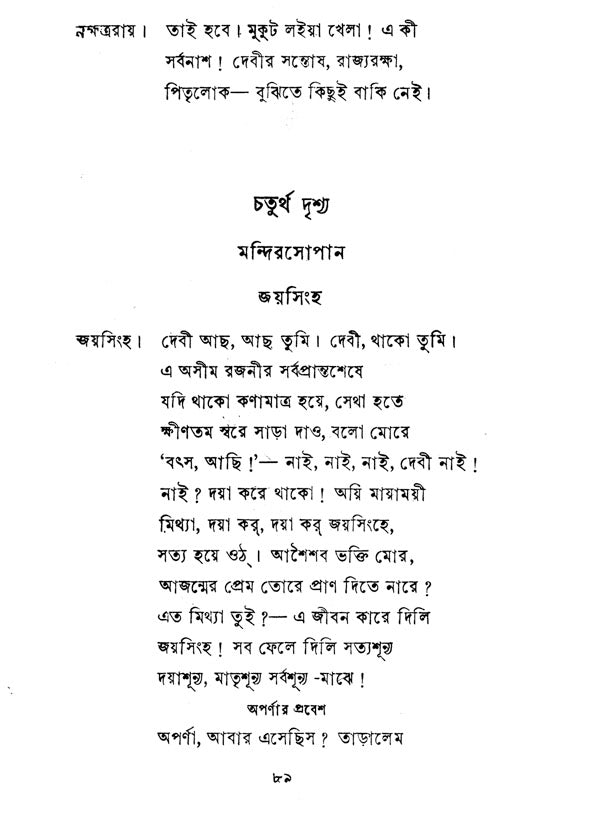 নক্ষত্ররায়। তাই হবে। মুকুট লইয়া খেলা! এ কী
সর্বনাশ! দেবীর সন্তোষ, রাজ্যরক্ষা,
পিতৃলোক— বুঝিতে কিছুই বাকি নেই।
চতুর্থ দৃশ্য
মন্দিরসোপান
জয়সিংহ
জয়সিংহ। দেবী আছ, আছ তুমি। দেবী, থাকো তুমি।
এ অসীম রজনীর সর্বপ্রান্তশেষে
যদি থাকো কণামাত্র হয়ে, সেথা হতে
ক্ষীণতম স্বরে সাড়া দাও, বলো মোরে
‘বৎস, আছি!’— নাই, নাই, নাই, দেবী নাই!
নাই? দয়া করে থাকো! অয়ি মায়াময়ী
মিথ্যা, দয়া কর্, দয়া কর্ জয়সিংহে,
সত্য হয়ে ওঠ্। আশৈশব ভক্তি মোর,
আজন্মের প্রেম তোরে প্রাণ দিতে নারে?
এত মিথ্যা তুই?— এ জীবন কারে দিলি
জয়সিংহ! সব ফেলে দিলি সত্যশূন্য
দয়াশূন্য, মাতৃশূন্য সর্বশূন্য -মাঝে!
অপর্ণার প্রবেশ
অপর্ণা, আবার এসেছিস? তাড়ালেম
৮৯